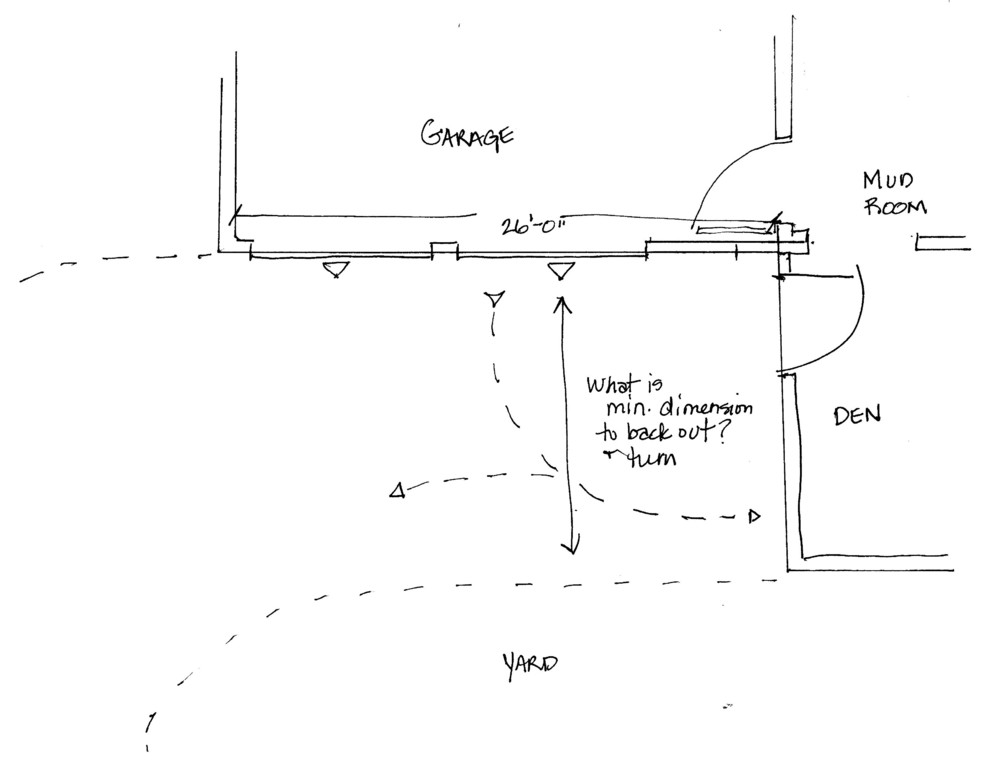 GARAGE
MUD
ROOM
26'-0"
What is
min. dimension
to back out?
turn
DEN
YARD